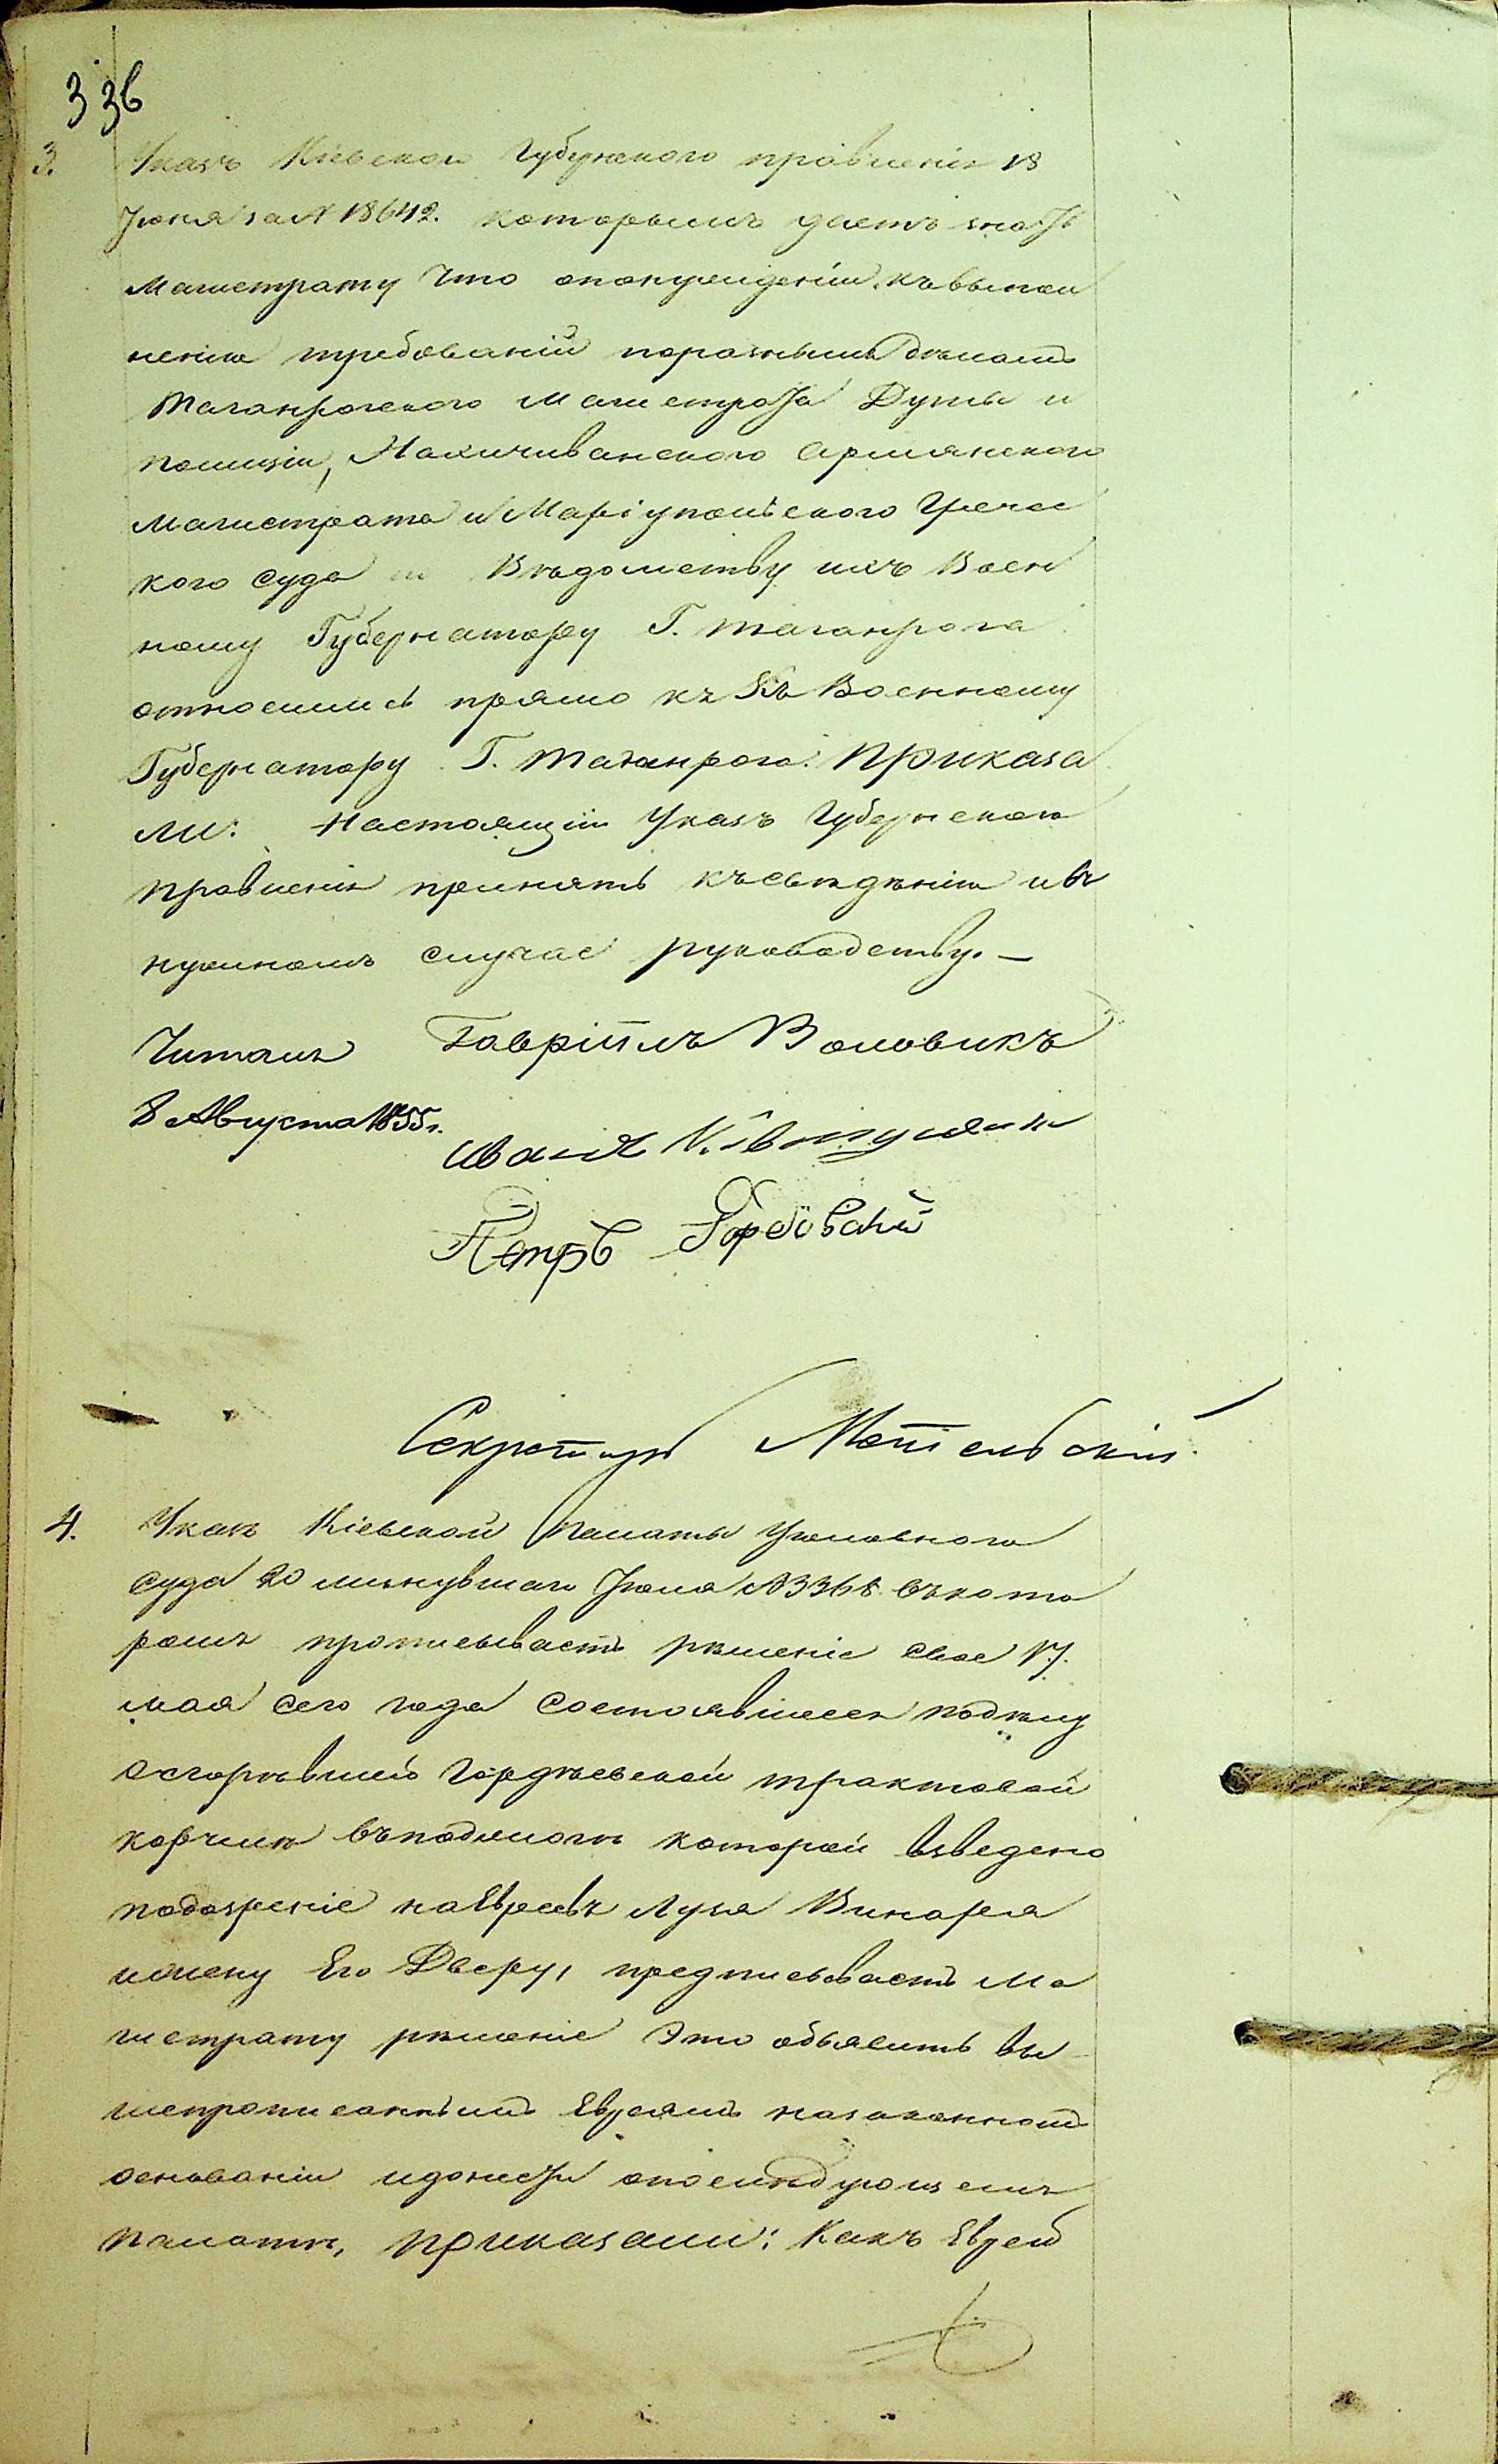 336
3. Указъ Кіевского Губернского правленія 18
Іюня за № 18642. которымъ даетъ знать
Магистрату что о понужденіи къ выпол
ненію требованій поразнымъ дѣламъ
Таганрогского Магистрата Думы и
полиціи, Нахичиванского Армянского
Магистрата и Маріупольского Гречес
кого суда по Вѣдомству ихъ Воен
ному Губернатору Г. Таганрога
относились прямо къ Военному
Губернатору Г. Таганрога. Приказа
ли: Настоящій Указъ Губернского
правленія принять къ свѣдѣнію и въ
нужномъ случае руководству. —
Читалъ Гавріилъ Воловикъ
8 Августа 1855 г.
Иванъ
Петръ
Секретарь
4. Указъ Кіевской Палаты Уголовного
суда 20 минувшаго Іюля № 3368 въ кото
ромъ прописываетъ рѣшеніе свое 17
мая сего года состоявшееся подѣлу
о сгорѣвшей Гордѣевской трактовой
корчмѣ въ поджогѣ которой взведено
подозреніе на Евреевъ Лузя Винаря
и жену Его Двееру, предписываетъ Ма
гистрату рѣшеніе Это объявить вы
шепрописаннымъ Евреямъ на законномъ
основаніи и донести о послѣдующемъ
Палатѣ, Приказали: Какъ Евреи